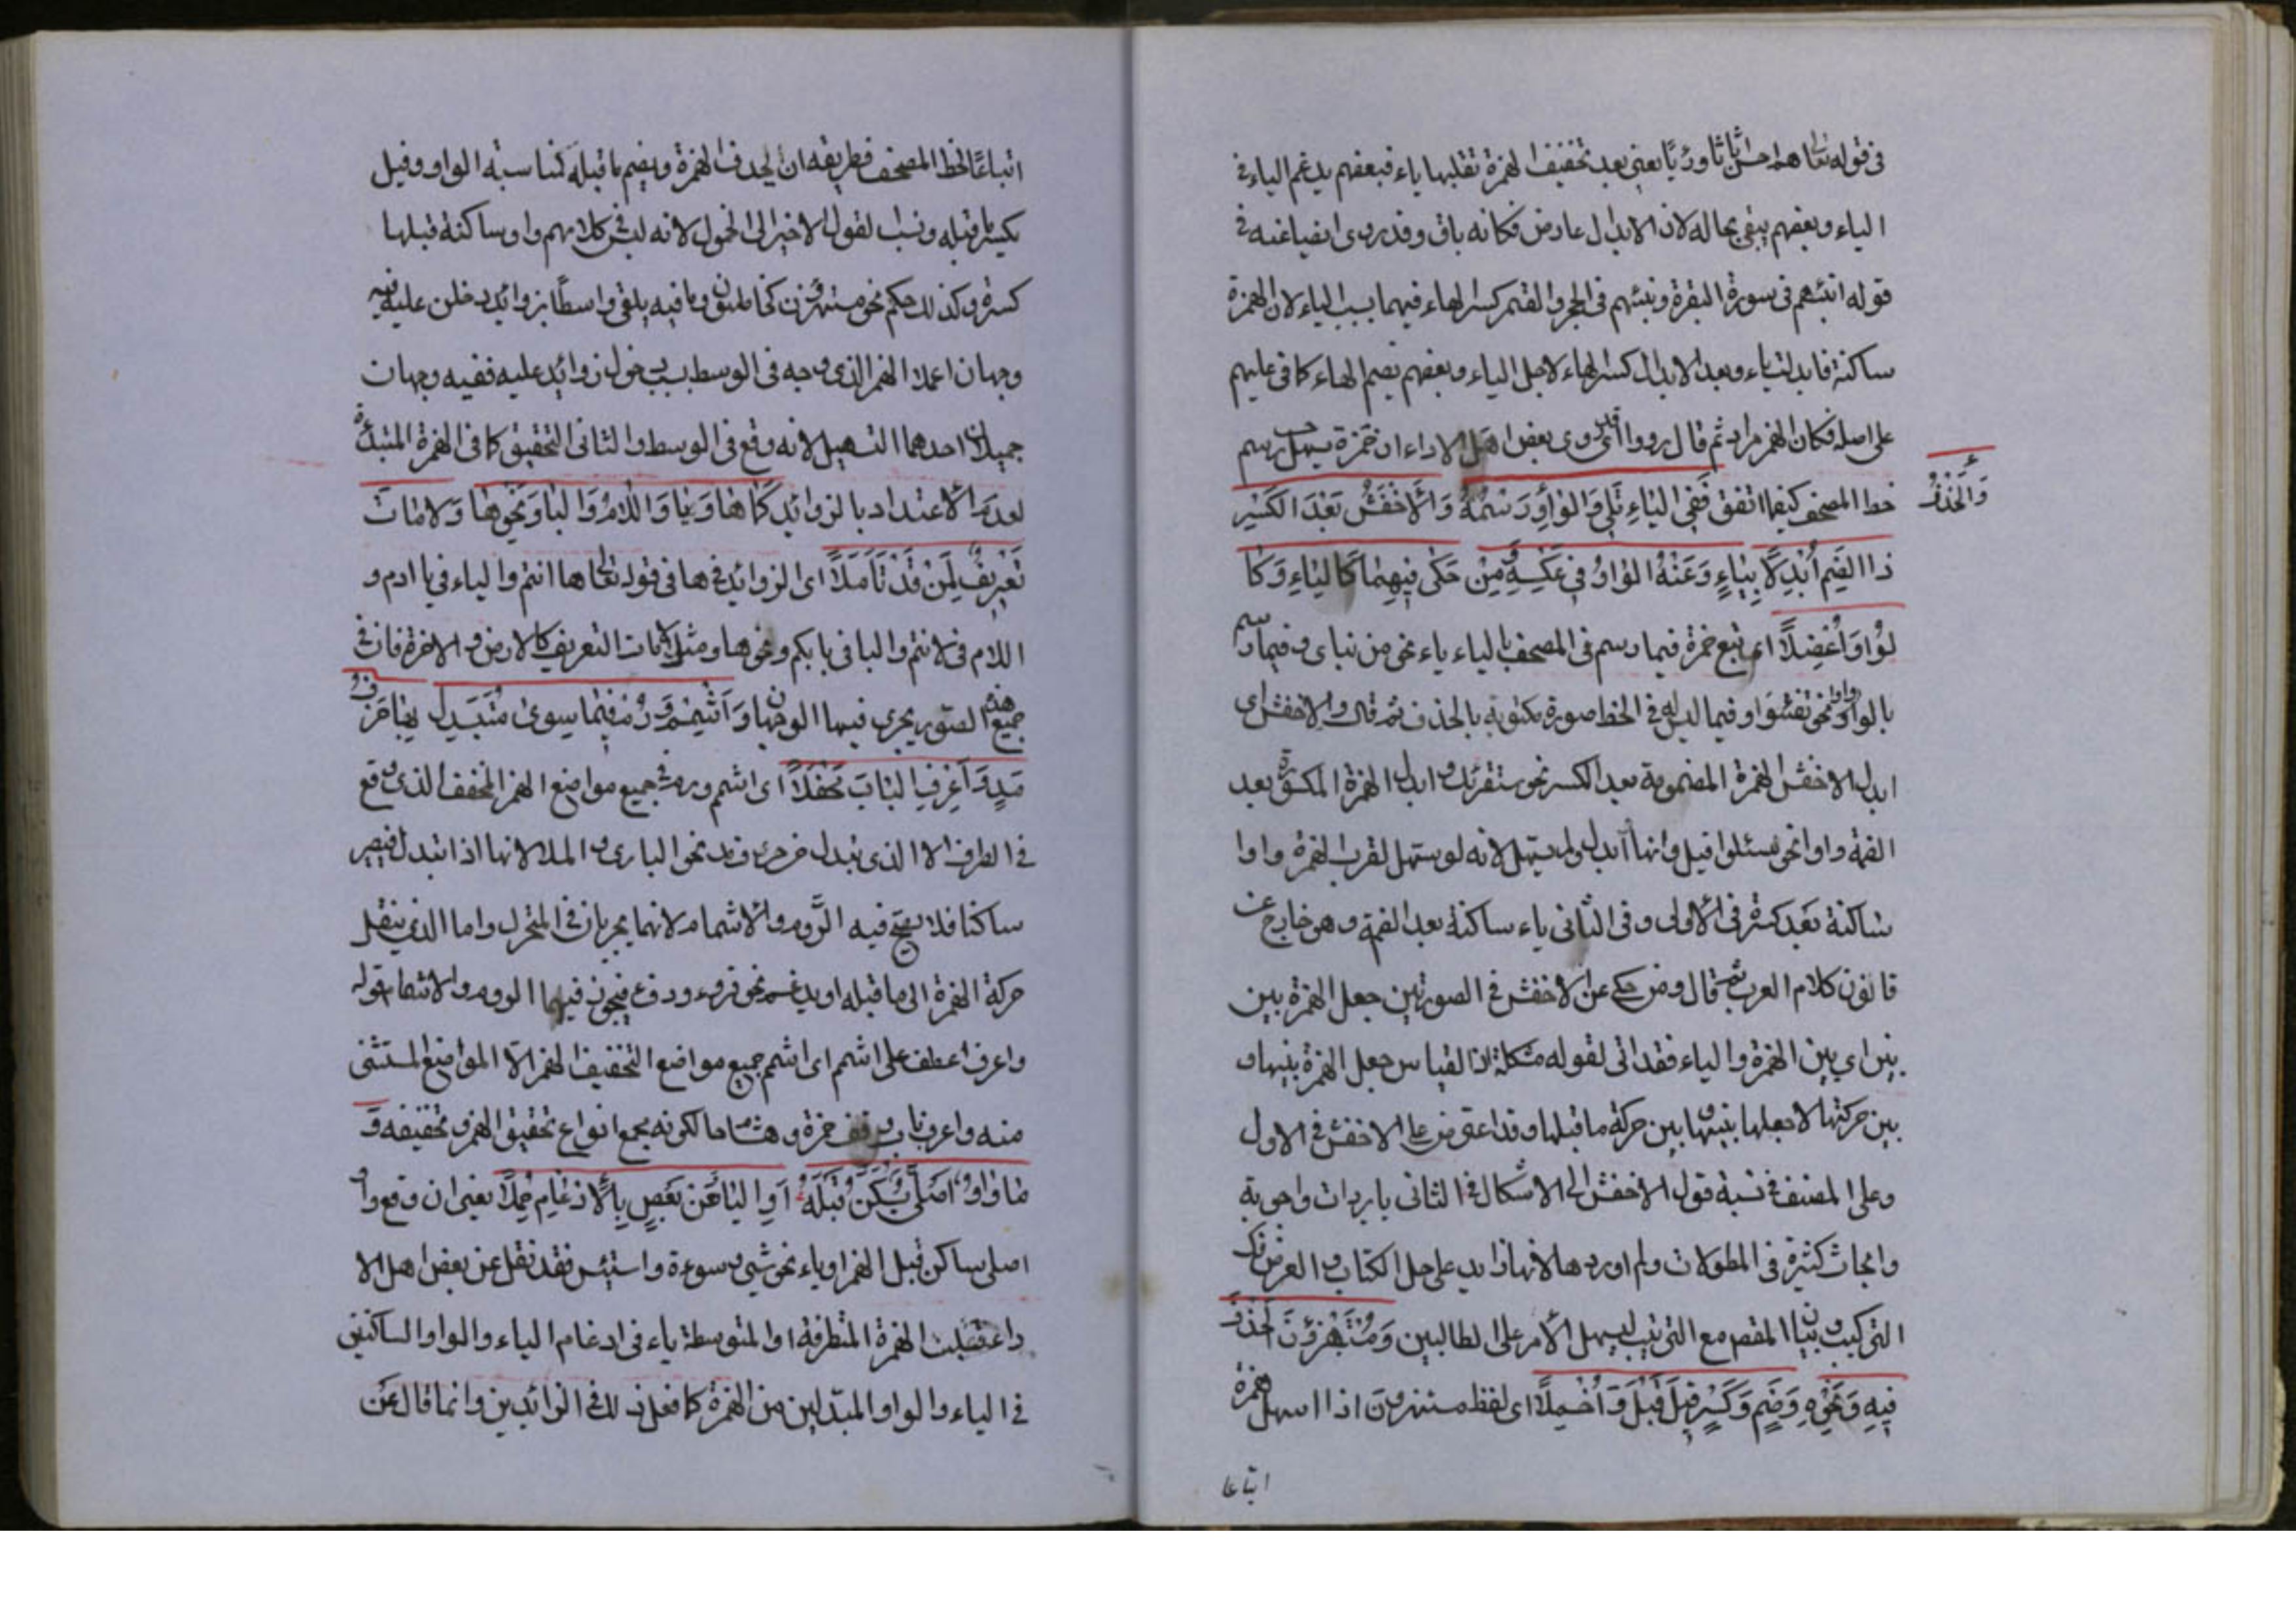 في قوله تعالى هم احسن اثاثا ورئيا يعني بعد تخفيف الهمزة تقلبها ياء فبعضهم يدغم الياء في
الياء وبعضهم يبقى بحاله لان الابدال عارض فكانه باق وقد روى ايضا عنه في
قوله انبئهم في سورة البقرة ونبئهم في الحجر والقمر كسر الهاء فيهما بسبب الياء لان الهمزة
ساكنة فابدلت ياء وبعد الابدال كسر الهاء لاجل الياء وبعضهم يضم الهاء كما في عليهم
على اصله فكان الهمز مراد ثم قال رووا اى روى بعض اهل الاداء ان حمزة يسهل حسب رسم
وَالْحَذْفُ
خط المصحف كيفما اتفق فَفِي الْيَاءِ يَلِي وَالْوَاوِ وَرَسْمُهُ وَالْاَخْفَشُ بَعْدَ الْكَسْرِ
ذا الضَّمِ اُبْدِلَا بِيَاءٍ وَعَنْهُ الْوَاوُ فِي عَكْسِهِ وَمِنْ حَكَى فِيهِمَا كَالْيَاءِ وَكَا
لْوَاوِ اَعْضَلَا اى يتبع حمزة فيما رسم في المصحف بالياء ياء نحو من نباى وفيما رسم
بالواو واوا نحو تفتئوا وفيما ليس له في الخط صورة مكتوبة بالحذف ثم قال والاخفش اى
ابدل الاخفش الهمزة المضمومة بعد الكسر نحو سنقرئك وابدل الهمزة المكسورة بعد
الضمة واوا نحو سئلوا قيل وانها ابدل ولم يسهل لانه لو سهل لقرب الهمزة واوا
ساكنة بعد كسرة في الاولى وفي الثاني ياء ساكنة بعد الضمة وهو خارج عن
قانون كلام العرب ثم قال ومن حكى عن الاخفش في الصورتين جعل الهمزة بين
بين اي بين الهمزة والياء فقد اتى لقوله مشكلة اذ القياس جعل الهمزة بينها و
بين حركتها لا جعلها بينها وبين حركة ما قبلها وقد اعترض على الاخفش في الاول
وعلى المصنف في نسبة قول الاخفش الى الاشكال في الثاني بايرادات واجوبة
وابحاث كثيرة في المطولات ولم اوردها لانها زايد على حل الكتاب والغرض فك
التركيب وبيان المقصد مع الترتيب ليسهل الامر على الطالبين وَمُسْتَهْزِؤُنَ الْحَذْفُ
فِيهِ وَنَحْوِهِ وَضَمٍ وَكَسْرٍ قَبْلُ قِيلَ وَاُخْمِلَا اى لفظ مستهزءون اذا اسهل همزة
اتباعا
اتباعًا لخط المصحف فطريقه ان يحذف الهمزة ويضم ما قبله لمناسبة الواو وقيل
يكسر ما قبله ونسب القول الاخير الى الخمول لانه ليس في كلامهم واو ساكنة قبلها
كسرة وكذلك حكم نحو مستهزئن كخاطئون وما فيه يلفى واسطًا بزوائد دخلن عليه فيه
وجهان اعملا الهمز الذى وجد في الوسط بسبب دخول زوائد عليه ففيه وجهان
جميلان احدهما التسهيل لانه وقع في الوسط والثاني التحقيق كما في الهمزة المبتدئة
لعدم الاعتداد بالزوائد كَمَا هَا وَيَا وَاللَّامُ وَالْبَا وَنَحْوُهَا وَلَامَاتَ
تَعْرِيفٍ لِمَنْ قَدْ تَاَمَّلَا اى الزوائد في ها في قوله تعالى ها انتم والياء في يا ادم و
اللام في لانتم والبا في بابكم ونحوها ومثل لامات التعريف كالارض والاخرة فان في
جميع هذه الصور يجرى فيها الوجهان وَاَشْمِمْ وَرُمْ فِيمَا سِوَى مُتَبَدِّلٍ بِهَا حَرْفُ
مَدٍّ وَاَعْرِفِ الْبَابَ مَحْفِلَا اى اشمم ورم في جميع مواضع الهمز المخفف الذى وقع
في الطرف الا الذى يبدل حرف مد نحو البارى والملا لانها اذا تبدل فيصير
ساكنا فلا يصح فيه الروم والاشمام لانهما يجريان في المتحرك واما الذي ينقل
حركة الهمزة الى ما قبله او يدغم نحو قروء ودفء فيجوز فيهما الروم والاشمام قوله
واعرف عطف على اشمم اى اشمم جميع مواضع التخفيف الهمز الا المواضع المستثنى
منه واعرف باب وقف حمزة وهشام لكونه مجمع انواع تحقيق الهمز وتخفيفه وَ
مَا وَاوٌ اَصْلِيٌّ تَسَكَّنَ قَبْلَهُ اَوِ الْيَا فَعَنْ بَعْضٍ بِالْاِدْغَامِ حُمِّلَا يعني ان وقع واو
اصلى ساكن قبل الهمز او ياء نحو شئ وسوءة واستيئس فقد نقل عن بعض اهل الا
داء قلبت الهمزة المتطرفة او المتوسطة ياء في ادغام الياء والواو الساكنين
في الياء والواو المبدلين من الهمزة كما فعل ذلك في الزائدين وانما قال عن